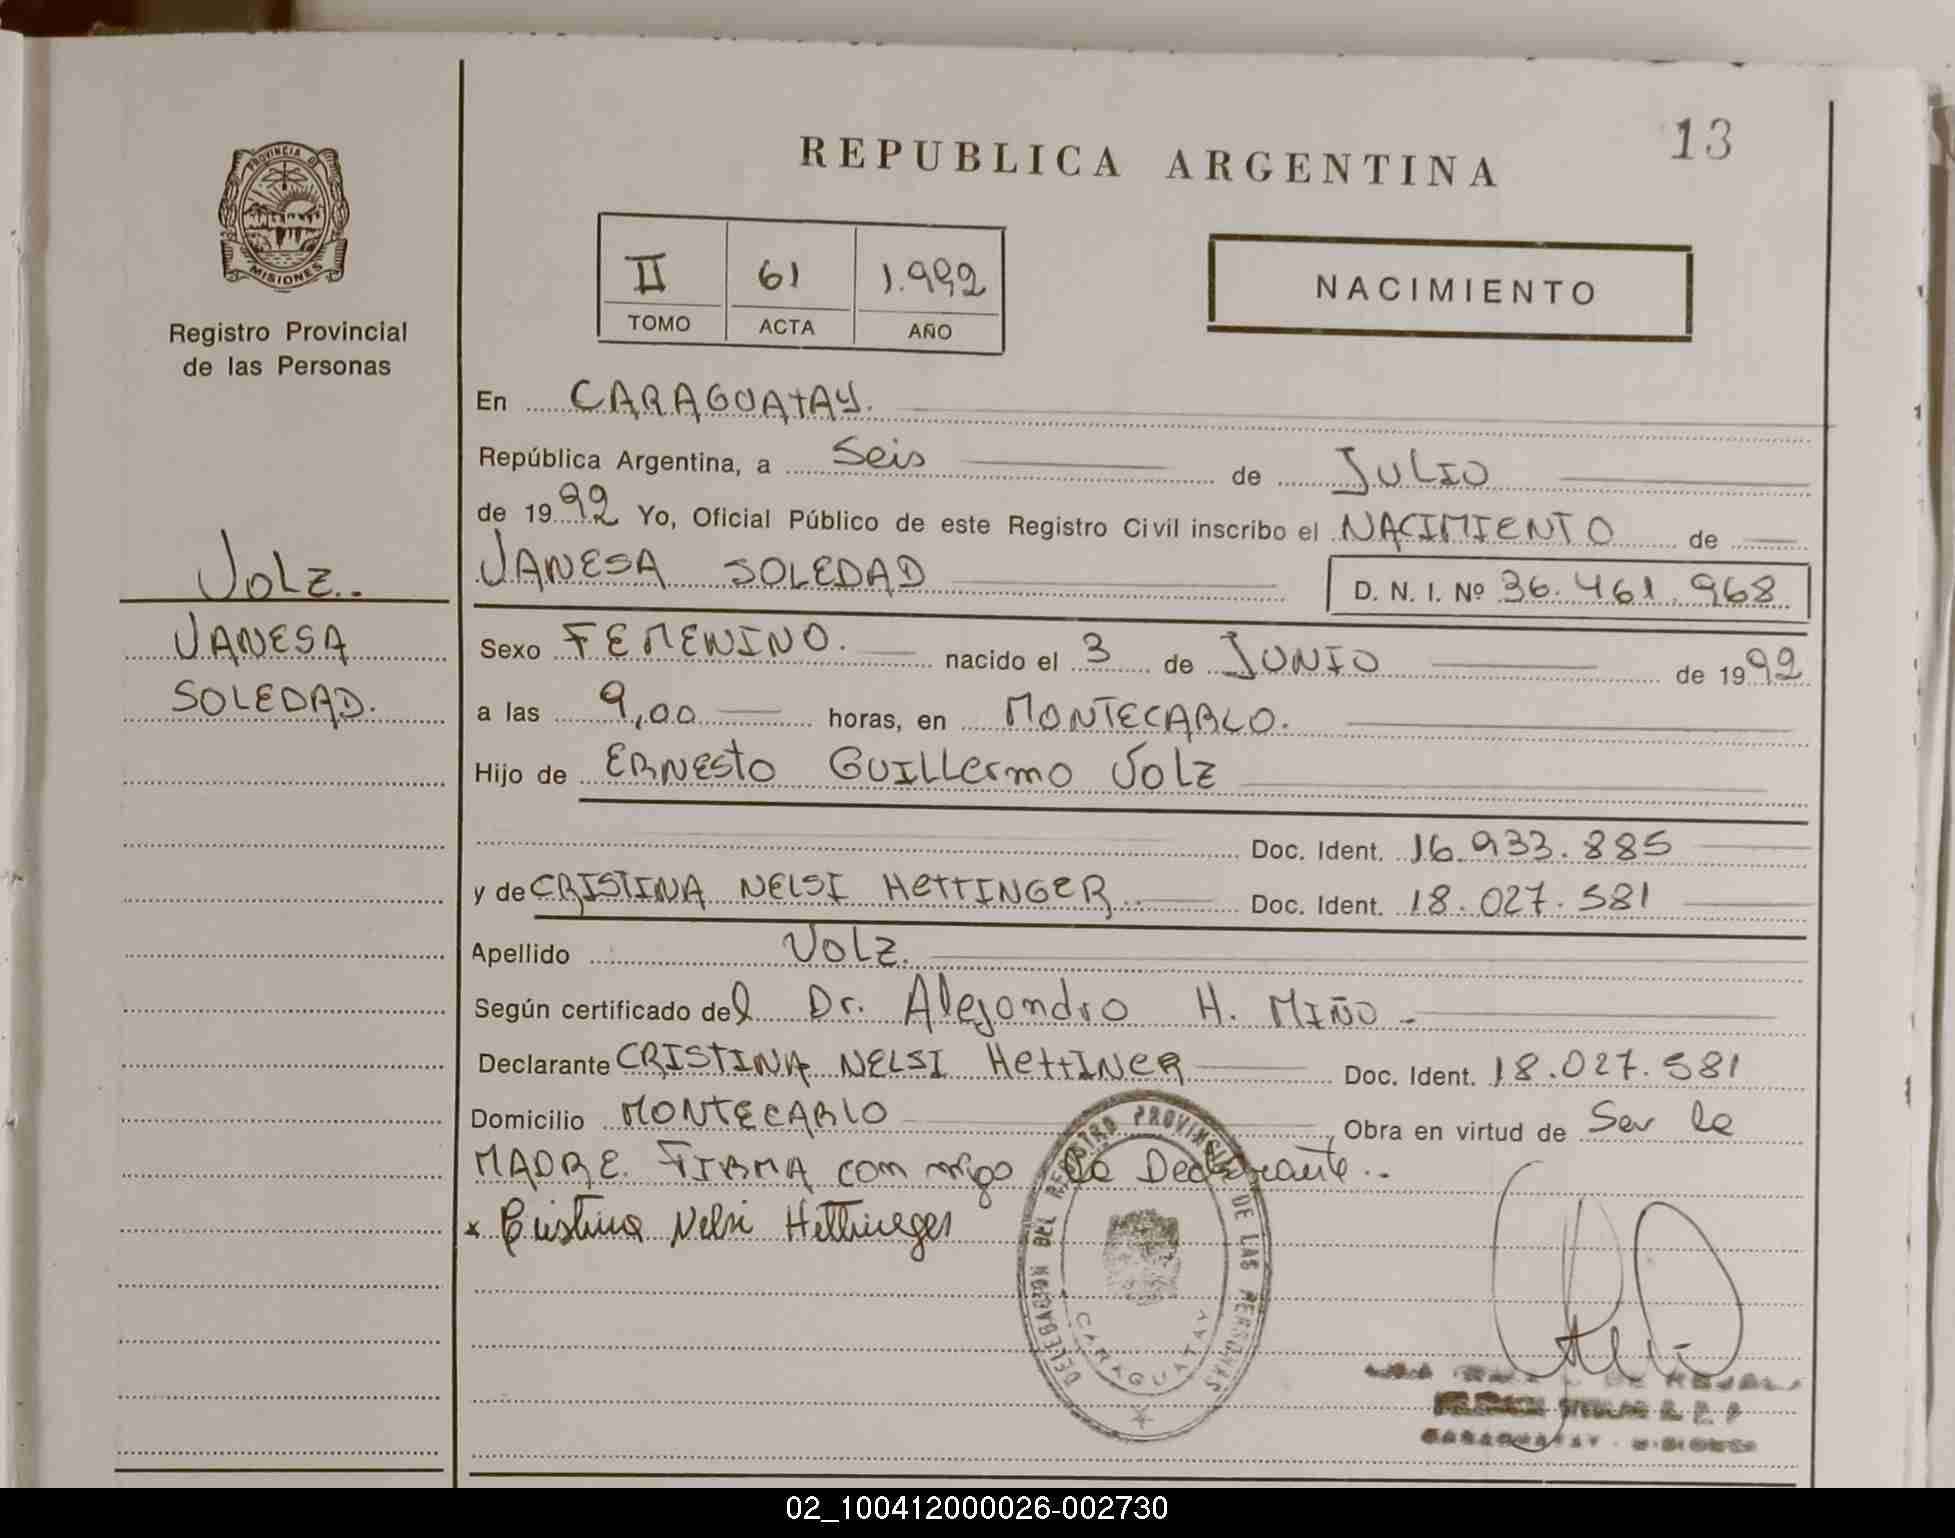 13
REPUBLICA ARGENTINA
PROVINCIA D
MISIONES
Registro Provincial
de las Personas
II 61 1.992
TOMO ACTA AÑO
NACIMIENTO
En CARAGUATAY.
República Argentina, a Seis de JULIO
de 1992 Yo, Oficial Público de este Registro Civil inscribo el NACIMIENTO de
VANESA SOLEDAD D. N. I. Nº 36.461.968
Volz..
VANESA
SOLEDAD.
Sexo FEMENINO. nacido el 3 de JUNIO de 1992
a las 9,00 horas, en MONTECARLO.
Hijo de ERNESTO GUILLERMO VOLZ
Doc. Ident. 16.933.885
y de CRISTINA NELSI HETTINGER. Doc. Ident. 18.027.581
Apellido VOLZ.
Según certificado del Dr. Alejandro H. MIÑO -
Declarante CRISTINA NELSI HETTINER Doc. Ident. 18.027.581
Domicilio MONTECARLO Obra en virtud de Ser la
MADRE. FIRMA conmigo la Declarante..
x Cristina Nelsi Hettineger
DELEGACION DEL REGISTRO PROVINCIAL DE LAS PERSONAS
CARAGUATAY
CARAGUATAY - MISIONES
02_100412000026-002730